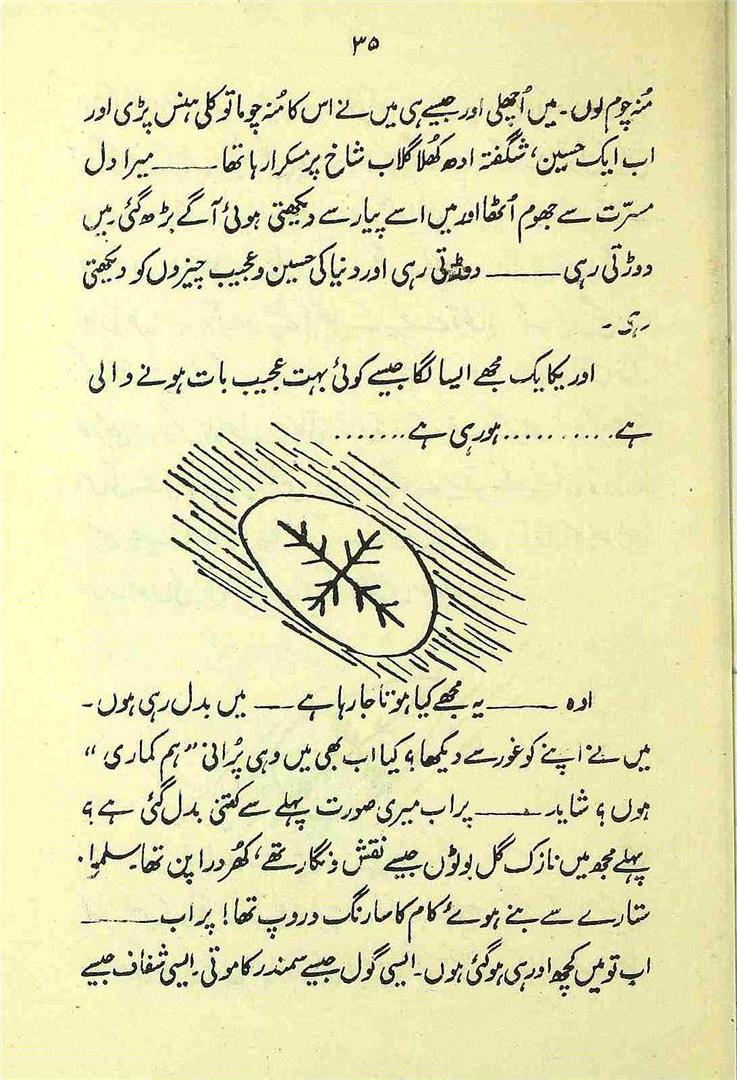 ۳۵
منہ چوم لوں۔ میں اُچھلی اور جیسے ہی میں نے اس کا مُنہ چوما تو کلی ہنس پڑی اور
اب ایک حسین، شگفتہ ادھ کھُلا گلاب شاخ پر مسکرا رہا تھا ـــــــ میرا دل
مسرّت سے جھوم اُٹھا اور میں اسے پیار سے دیکھتی ہوئی آگے بڑھ گئی۔ میں
دوڑتی رہی ـــــــ دوڑتی رہی اور دنیا کی حسین و عجیب چیزوں کو دیکھتی
رہی۔
اور یکایک مجھے ایسا لگا جیسے کوئی بہت عجیب بات ہونے والی
ہے.......... ہو رہی ہے.......
اوہ ـــــــ یہ مجھے کیا ہوتا جا رہا ہے ــــ میں بدل رہی ہوں۔
میں نے اپنے کو غور سے دیکھا؟ کیا اب بھی میں وہی پُرانی "ہم کماری"
ہوں؟ شاید ـــــــ پر اب میری صورت پہلے سے کتنی بدل گئی ہے؟
پہلے مجھ میں نازک گل بوٹوں جیسے نقش و نگار تھے، کھُردرا پن تھا۔ سلمہ
ستارے سے بنے ہوئے کام کا سا رنگ و روپ تھا! پر اب ـــــــ
اب تو میں کچھ اور ہی ہو گئی ہوں۔ ایسی گول جیسے سمندر کا موتی۔ ایسی شفاف جیسے